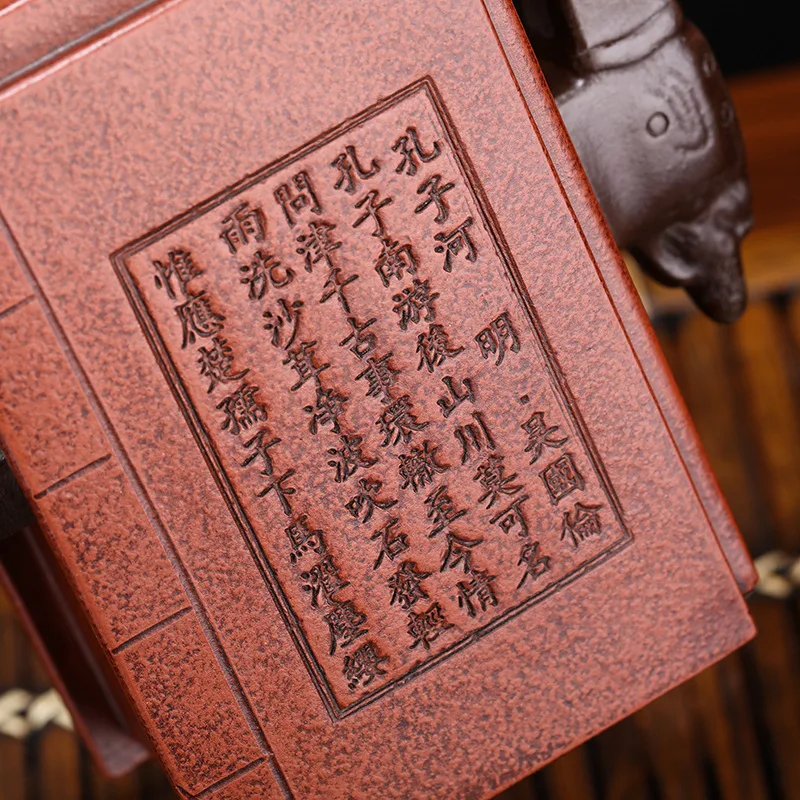 孔子河 明·吴國倫
孔子南游後山川莫可名
問津千古事環轍至今情
雨洗沙茸净波吹石發輕
惟應楚孺子下馬濯塵纓